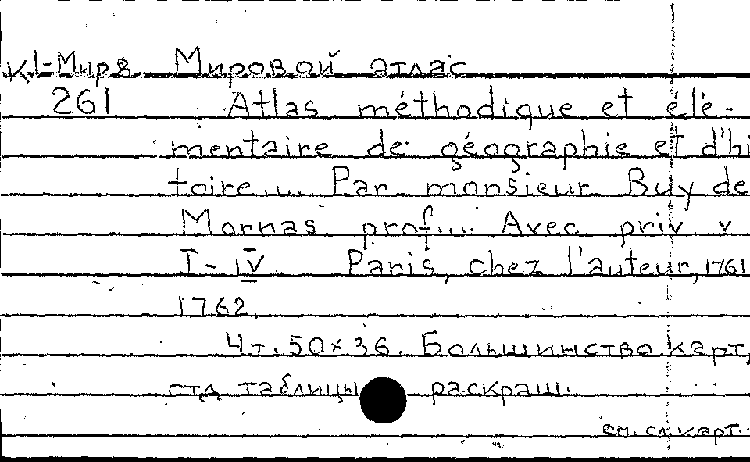 К1-Мир8 Мировой атлас
261 Atlas méthodique et élé-
mentaire de géographie et d'hi
toire ... Par monsieur Buy de
Mornas prof... Avec priv v
I-IV Paris, chez l'auteur, 1761
1762.
4т. 50×36. Большинство карт,
таблицы раскраш.
см. сл карт.